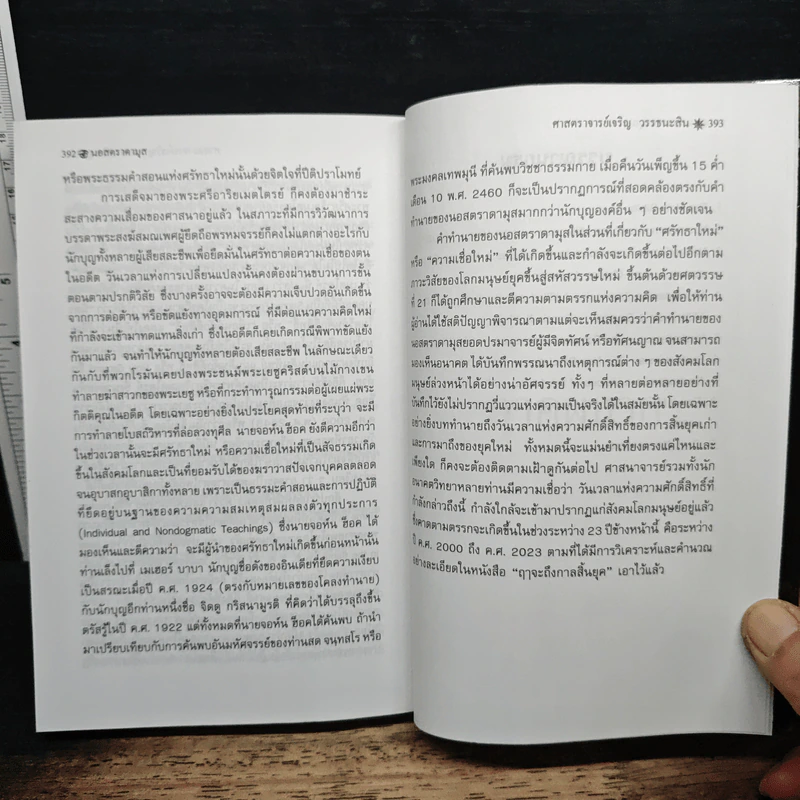 392 นอสตราดามุส
หรือพระธรรมคำสอนแห่งศรัทธาใหม่นั้นด้วยจิตใจที่ปีติปราโมทย์
การเสด็จมาของพระศรีอาริยเมตไตรย์ ก็คงต้องมาชำระ
สะสางความเสื่อมของศาสนาอยู่แล้ว ในสภาวะที่มีการวิวัฒนาการ
บรรดาพระสงฆ์สมณเพศผู้ยึดถือพรหมจรรย์ก็คงไม่แตกต่างอะไรกับ
นักบุญทั้งหลายผู้เสียสละชีพเพื่อยึดมั่นในศรัทธาต่อความเชื่อของตน
ในอดีต วันเวลาแห่งการเปลี่ยนแปลงนั้นคงต้องผ่านขบวนการขั้น
ตอนตามปรกติวิสัย ซึ่งบางครั้งอาจจะต้องมีความเจ็บปวดอันเกิดขึ้น
จากการต่อต้าน หรือขัดแย้งทางอุดมการณ์ ที่มีต่อแนวความคิดใหม่
ที่กำลังจะเข้ามาทดแทนสิ่งเก่า ซึ่งในอดีตก็เคยเกิดกรณีพิพาทขัดแย้ง
กันมาแล้ว จนทำให้นักบุญทั้งหลายต้องเสียสละชีพ ในลักษณะเดียว
กันกับที่พวกโรมันเคยปลงพระชนม์พระเยซูคริสต์บนไม้กางเขน
ทำลายฆ่าสาวกของพระเยซู หรือที่กระทำทารุณกรรมต่อผู้เผยแผ่พระ
กิตติคุณในอดีต โดยเฉพาะอย่างยิ่งในประโยคสุดท้ายที่ระบุว่า จะมี
การทำลายโบสถ์วิหารที่ล่อลวงทุศีล นายจอห์น ฮ็อค ยังตีความอีกว่า
ในช่วงเวลานั้นจะมีศรัทธาใหม่ หรือความเชื่อใหม่ที่เป็นสัจธรรมเกิด
ขึ้นในสังคมโลกและเป็นที่ยอมรับได้ของฆราวาสปัจเจกบุคคลตลอด
จนอุบาสกอุบาสิกาทั้งหลาย เพราะเป็นธรรมะคำสอนและการปฏิบัติ
ที่ยึดอยู่บนฐานของความความเหตุสมผลลงตัวทุกประการ
(Individual and Nondogmatic Teachings) ซึ่งนายจอห์น ฮ็อค ได้
มองเห็นและตีความว่า จะมีผู้นำของศรัทธาใหม่เกิดขึ้นก่อนหน้านั้น
ท่านเล็งไปที่ เมเฮอร์ บาบา นักบุญชื่อดังของอินเดียที่ยึดความเงียบ
เป็นสรณะเมื่อปี ค.ศ. 1924 (ตรงกับหมายเลขของโคลงทำนาย)
กับนักบุญอีกท่านหนึ่งชื่อ จิตดู กริสนามูรติ ที่คิดว่าได้บรรลุถึงขั้น
ตรัสรู้ในปี ค.ศ. 1922 แต่ทั้งหมดที่นายจอห์น ฮ็อคได้ค้นพบ ถ้านำ
มาเปรียบเทียบกับการค้นพบอันมหัศจรรย์ของท่านสด จนฺทสโร หรือ
ศาสตราจารย์เจริญ วรรธนะสิน 393
พระมงคลเทพมุนี ที่ค้นพบวิชชาธรรมกาย เมื่อคืนวันเพ็ญขึ้น 15 ค่ำ
เดือน 10 พ.ศ. 2460 ก็จะเป็นปรากฏการณ์ที่สอดคล้องตรงกับคำ
ทำนายของนอสตราดามุสมากกว่านักบุญองค์อื่น ๆ อย่างชัดเจน
คำทำนายของนอสตราดามุสในส่วนที่เกี่ยวกับ “ศรัทธาใหม่”
หรือ “ความเชื่อใหม่” ที่ได้เกิดขึ้นและกำลังจะเกิดขึ้นต่อไปอีกตาม
ภาวะวิสัยของโลกมนุษย์ยุคขึ้นสู่สหัสวรรษใหม่ ขึ้นต้นด้วยศตวรรษ
ที่ 21 ก็ได้ถูกศึกษาและตีความตามตรรกแห่งความคิด เพื่อให้ท่าน
ผู้อ่านได้ใช้สติปัญญาพิจารณาตามแต่จะเห็นสมควรว่าคำทำนายของ
นอสตราดามุสยอดปรมาจารย์ผู้มีจิตทัศน์ หรือทัศนญาณ จนสามารถ
มองเห็นอนาคต ได้บันทึกพรรณนาถึงเหตุการณ์ต่าง ๆ ของสังคมโลก
มนุษย์ล่วงหน้าได้อย่างน่าอัศจรรย์ ทั้งๆ ที่หลายต่อหลายอย่างที่
บันทึกไว้ยังไม่ปรากฏวี่แววแห่งความเป็นจริงได้ในสมัยนั้น โดยเฉพาะ
อย่างยิ่งบททำนายถึงวันเวลาแห่งความศักดิ์สิทธิ์ของการสิ้นยุคเก่า
และการมาถึงของยุคใหม่ ทั้งหมดนี้จะแม่นยำเที่ยงตรงแค่ไหนและ
เพียงใด ก็คงจะต้องติดตามเฝ้าดูกันต่อไป ศาสนาจารย์รวมทั้งนัก
อนาคตวิทยาหลายท่านมีความเชื่อว่า วันเวลาแห่งความศักดิ์สิทธิ์ที่
กำลังกล่าวถึงนี้ กำลังใกล้จะเข้ามาปรากฏแก่สังคมโลกมนุษย์อยู่แล้ว
ซึ่งคาดตามตรรกจะเกิดขึ้นในช่วงระหว่าง 23 ปีข้างหน้านี้ คือระหว่าง
ปี ค.ศ. 2000 ถึง ค.ศ. 2023 ตามที่ได้มีการวิเคราะห์และคำนวณ
อย่างละเอียดในหนังสือ “ฤๅจะถึงกาลสิ้นยุค” เอาไว้แล้ว